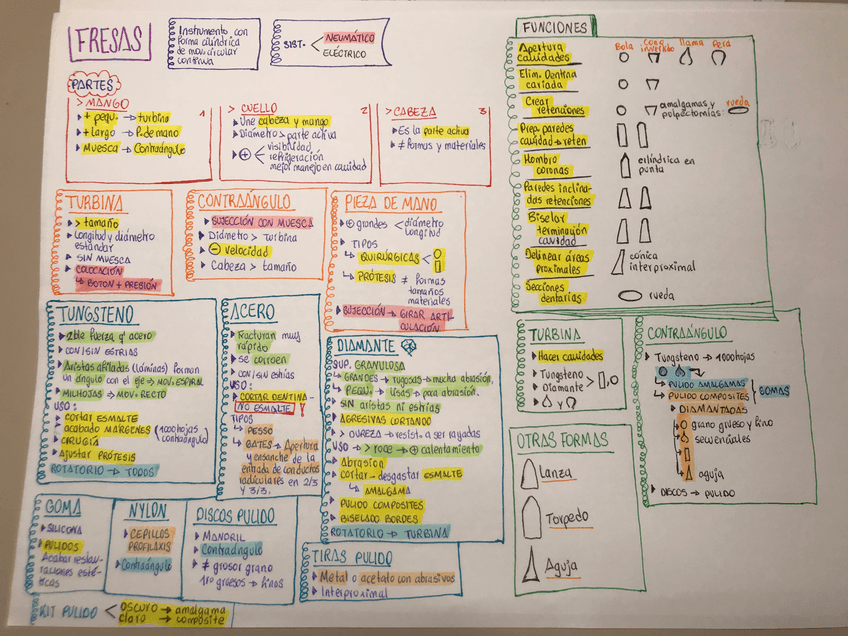 FRESAS
Instrumento con
forma cilíndrica
de mov. circular
continua
SIST.
NEUMÁTICO
ELÉCTRICO
PARTES
> MANGO 1
+ pequ. → turbina
+ largo → P. de mano
Muesca → Contraángulo
> CUELLO 2
Une cabeza y mango
Diámetro > parte activa
+ visibilidad
refrigeración
mejor manejo en cavidad
> CABEZA 3
Es la parte activa
≠ formas y materiales
TURBINA
> tamaño
Longitud y diámetro
estándar
SIN MUESCA
COLOCACIÓN
↳ BOTON + PRESIÓN
CONTRAÁNGULO
SUJECCIÓN CON MUESCA
Diámetro > turbina
- velocidad
Cabeza > tamaño
PIEZA DE MANO
+ grandes < diámetro
longitud
TIPOS
↳ QUIRÚRGICAS
↳ PRÓTESIS ≠ formas
tamaños
materiales
SUJECCIÓN → GIRAR ARTI-
CULACIÓN
TUNGSTENO
2ble fuerza q' acero
CON/SIN ESTRIAS
Aristas afiladas (láminas) forman
un ángulo con el eje → MOV. ESPIRAL
MILHOJAS → MOV. RECTO
USO:
cortar ESMALTE
acabado MÁRGENES (100 hojas
contraángulo)
CIRUGÍA
Ajustar PRÓTESIS
ROTATORIO → TODOS
ACERO
Fracturan muy
rápido
Se corroen
CON/SIN estrías
USO:
CORTAR DENTINA-
NO ESMALTE!
TIPOS
↳ PESSO
↳ GATES → Apertura
y ensanche de la
entrada de conductos
radiculares en 2/3
y 3/3.
DIAMANTE
SUP. GRANULOSA
↳ GRANDES → rugosas → mucha abrasión.
↳ PEQU. → lisas → poca abrasión.
SIN aristas ni estrías
AGRESIVAS CORTANDO
> DUREZA → resist. a ser rayadas
USO → > roce → + calentamiento
Abrasion
cortar - desgastar ESMALTE
↳ AMALGAMA
PULIDO COMPOSITES
BISELADO BORDES
ROTATORIO → TURBINA
GOMA
SILICONA
PULIDOS
Acabar restau-
raciones esté-
ticas
NYLON
CEPILLOS
PROFILAXIS
Contraángulo
DISCOS PULIDO
MANDRIL
Contraángulo
≠ grosor grano
1ro gruesos → finos
TIRAS PULIDO
Metal o acetato con abrasivos
Interproximal
KIT PULIDO
OSCURO → amalgama
claro → composite
FUNCIONES
Bola
Cono
invertido
llama
Pera
Apertura
cavidades
Elim. Dentina
cariada
Crear
retenciones
amalgamas y
pulpectomías
rueda
Prep. paredes
cavidad → reten
Hombro
coronas
cilíndrica en
punta
Paredes inclina-
das retenciones
Biselar
terminación
cavidad
Delinear áreas
proximales
cónica
interproximal
Secciones
dentarias
rueda
TURBINA
Hacer cavidades
Tungsteno
Diamante
y
CONTRAÁNGULO
Tungsteno → 100 hojas
↳ PULIDO AMALGAMAS
↳ PULIDO COMPOSITES
GOMAS
↳ DIAMANTADAS
grano grueso y fino
secuenciales
aguja
DISCOS → PULIDO
OTRAS FORMAS
Lanza
Torpedo
Aguja